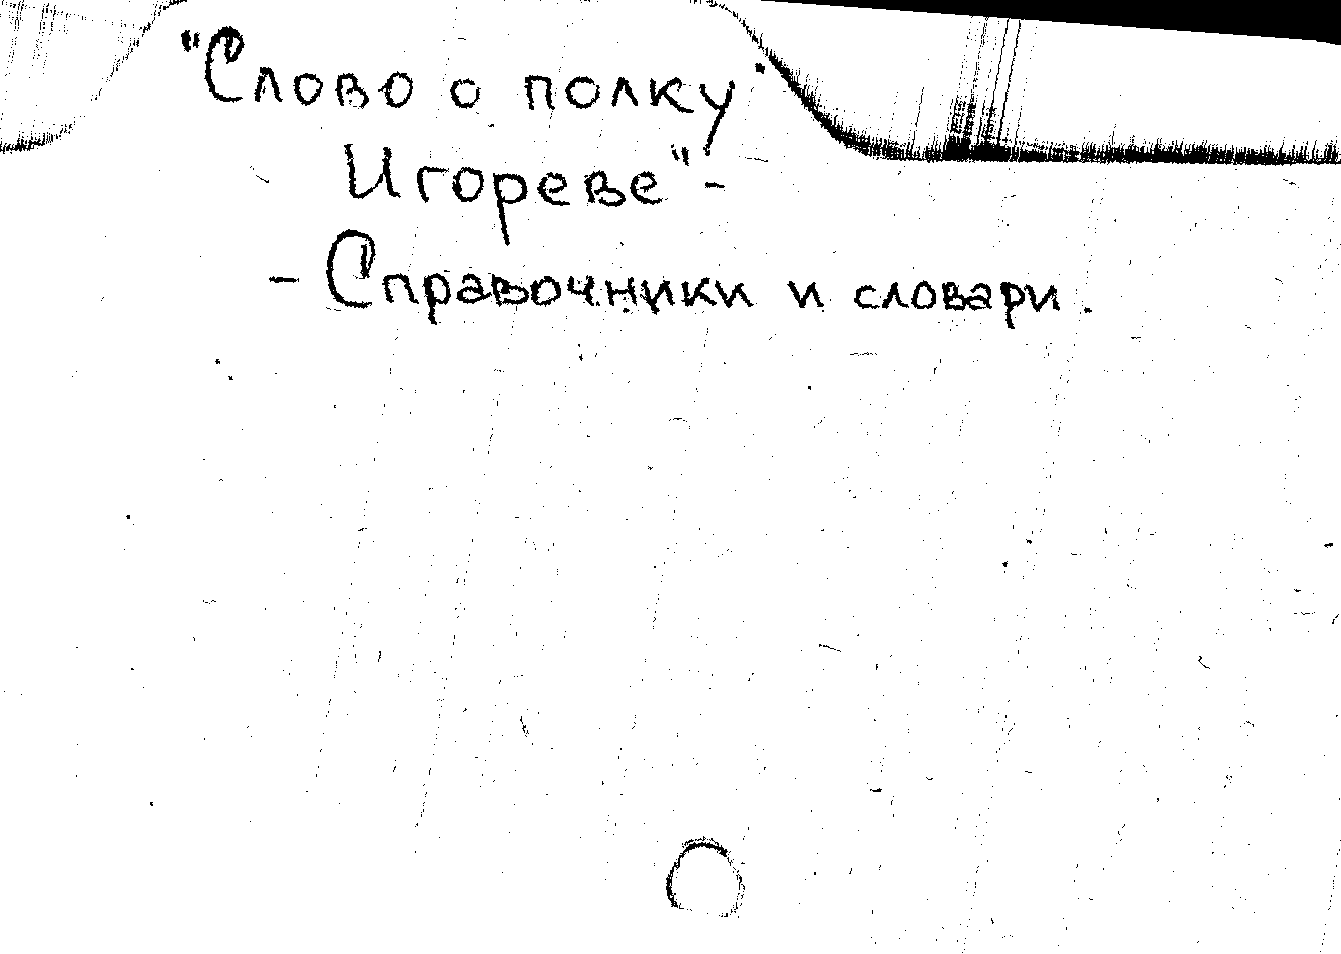 "Слово о полку
Игореве" -
- Справочники и словари.